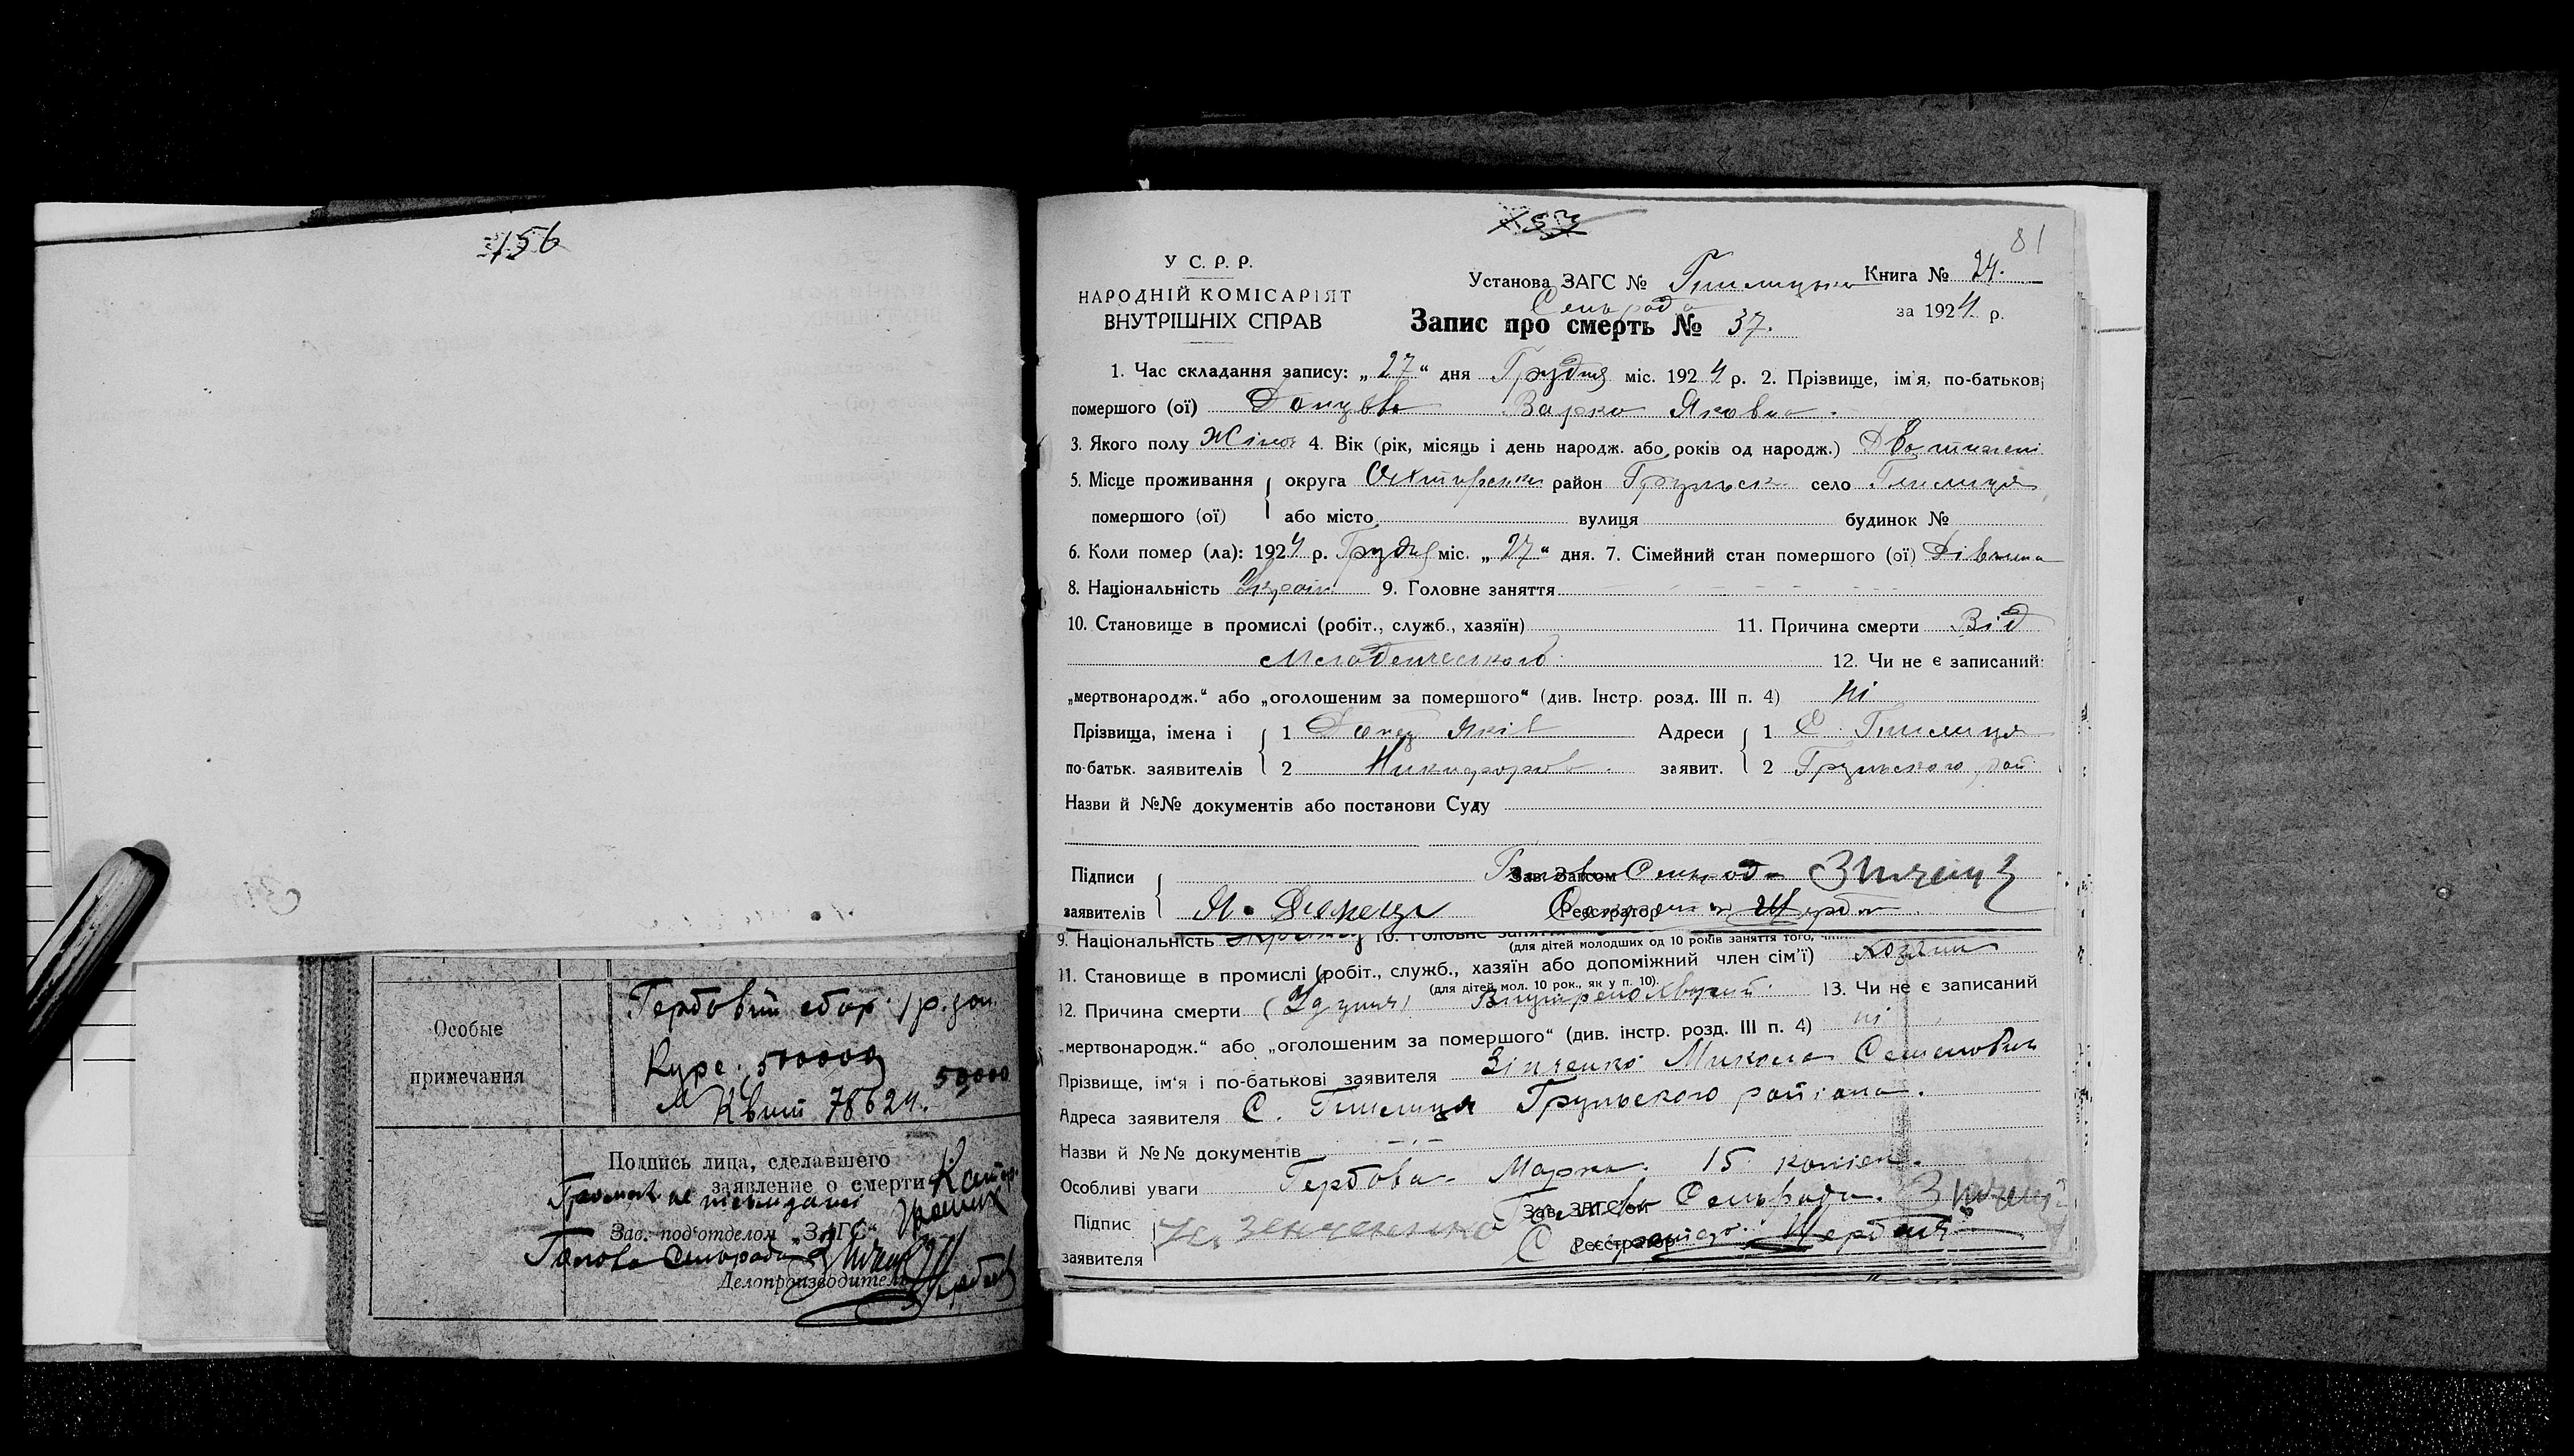 156
Особые
примечания
Гербовий сбор 1 р. зол.
Курс 500000
50000
Квит 78624.
Подпись лица, сделавшего
заявление о смерти
Зав. под'отделом „ЗАГС“
Голова Сельради
Делопроизводитель
157
81
У С. Р. Р.
НАРОДНІЙ КОМІСАРІЯТ
ВНУТРІШНІХ СПРАВ
Установа ЗАГС № Книга № 24.
Сельрада
за 1924 р.
Запис про смерть № 37.
1. Час складання запису: „27“ дня Грудня міс. 1924 р. 2. Прізвище, ім'я, по-батькові
помершого (ої) Варка Яковна.
3. Якого полу Жіноч 4. Вік (рік, місяць і день народж. або років од народж.) Два тижні
5. Місце проживання округа Охтирська район Грунськ село
помершого (ої) або місто вулиця будинок №
6. Коли помер (ла): 1924 р. Грудня міс. „27“ дня. 7. Сімейний стан помершого (ої) Дівчина
8. Національність Україн 9. Головне заняття
10. Становище в промислі (робіт., служб., хазяїн) 11. Причина смерти Від
Младенческого 12. Чи не є записаний
„мертвонародж.“ або „оголошеним за помершого“ (див. Інстр. розд. III п. 4) ні
Прізвища, імена і 1 Донец Яків Адреси 1 С.
по-батьк. заявителів 2 Никифоров. заявит. 2 Грунського рай
Назви й №№ документів або постанови Суду
Підписи Зав. Загсом Голова Сельради
заявителів Я. Донець Реєстратор
9. Національність
(для дітей молодших од 10 років заняття того,
11. Становище в промислі (робіт., служб., хазяїн або допоміжний член сім'ї) Хозяин
(для дітей мол. 10 рок., як у п. 10)
12. Причина смерти 13. Чи не є записаний
„мертвонародж.“ або „оголошеним за помершого“ (див. інстр. розд. III п. 4) ні
Прізвище, ім'я і по-батькові заявителя Зінченко Микола Семенович
Адреса заявителя С. Грунського района.
Назви й №№ документів
Особливі уваги Гербова Марка 15 копієк.
Підпис Зав. ЗАГСом Голова Сельради.
заявителя Н. Зенченко Реєстратор Щербак